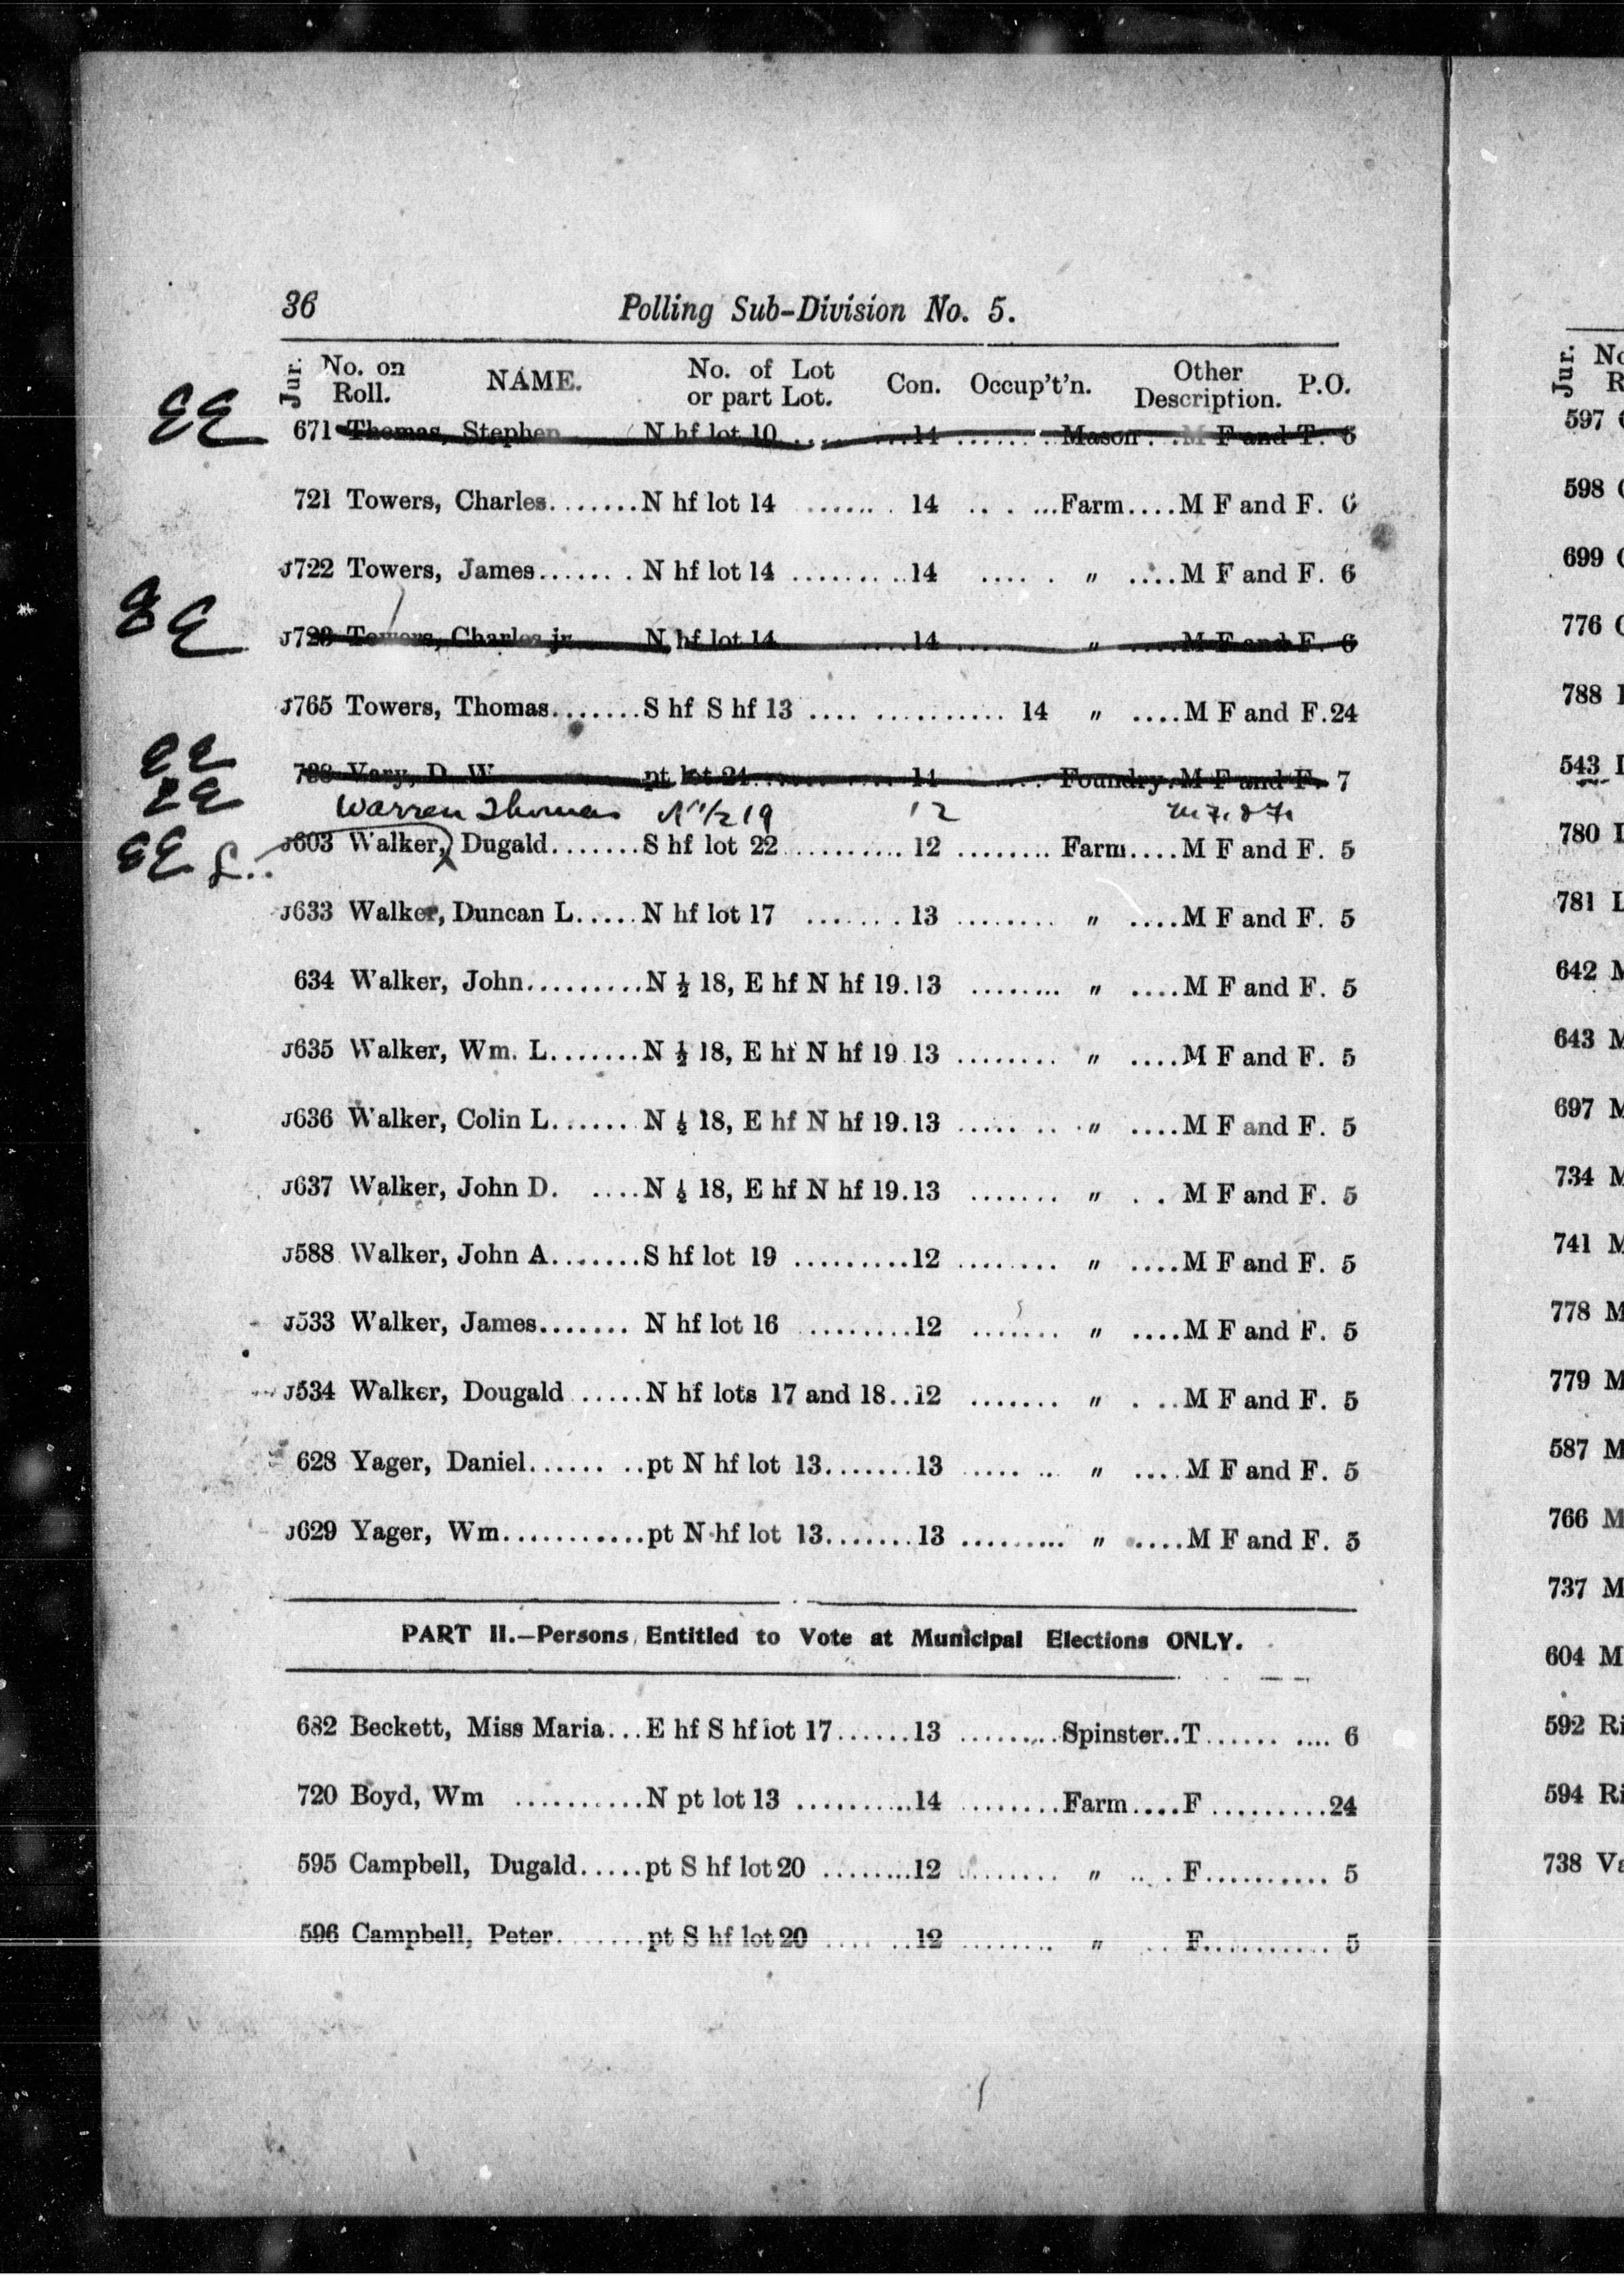 36 Polling Sub-Division No. 5.
Jur. No. on Roll. NAME. No. of Lot or part Lot. Con. Occup't'n. Other Description. P.O.
EE 671 Thomas, Stephen N hf lot 10 .... ...14 ....... Mason ...M F and T. 6
721 Towers, Charles.......N hf lot 14 ....... 14 .. . ...Farm....M F and F. 6
J722 Towers, James....... .N hf lot 14 .........14 ..... . " ....M F and F. 6
EE J723 Towers, Charles jr N hf lot 14 ....14 ........ " ....M F and F. 6
J765 Towers, Thomas.......S hf S hf 13 .... .......... 14 " ....M F and F.24
EE 738 Vary, D. W. pt lot 21 ........ 14 ..... Foundry.M F and F. 7
EE Warren Thomas N 1/2 19 12 M F. & F.
EE L.. J603 Walker, Dugald.......S hf lot 22 .......... 12 ........ Farm....M F and F. 5
J633 Walker, Duncan L.....N hf lot 17 ....... . 13 ........ " ....M F and F. 5
634 Walker, John.........N ½ 18, E hf N hf 19.13 ........ " ....M F and F. 5
J635 Walker, Wm. L.......N ½ 18, E hf N hf 19 13 ........ " ....M F and F. 5
J636 Walker, Colin L.......N ½ 18, E hf N hf 19.13 ..... .. . " ....M F and F. 5
J637 Walker, John D. ....N ½ 18, E hf N hf 19.13 ....... " . . M F and F. 5
J588 Walker, John A.......S hf lot 19 .........12 ........ " ....M F and F. 5
J533 Walker, James....... N hf lot 16 .........12 ....... " ....M F and F. 5
J534 Walker, Dougald ......N hf lots 17 and 18..12 ....... " . ..M F and F. 5
628 Yager, Daniel...... ..pt N hf lot 13.......13 ..... .. " ....M F and F. 5
J629 Yager, Wm............pt N hf lot 13.......13 ......... " .....M F and F. 5
PART II.—Persons Entitled to Vote at Municipal Elections ONLY.
682 Beckett, Miss Maria...E hf S hf lot 17......13 .........Spinster..T....... .... 6
720 Boyd, Wm ...........N pt lot 13 ..........14 ........Farm....F ..........24
595 Campbell, Dugald.....pt S hf lot 20 .........12 ........ " ... . F........... 5
596 Campbell, Peter.......pt S hf lot 20 .... ..12 ........ " .. F........... 5
Jur. No
R
597
598
699
776
788
543
780
781 L
642 M
643 M
697 M
734 M
741 M
778 M
779 M
587 M
766 M
737 M
604 M
592 Ri
594 Ri
738 Va